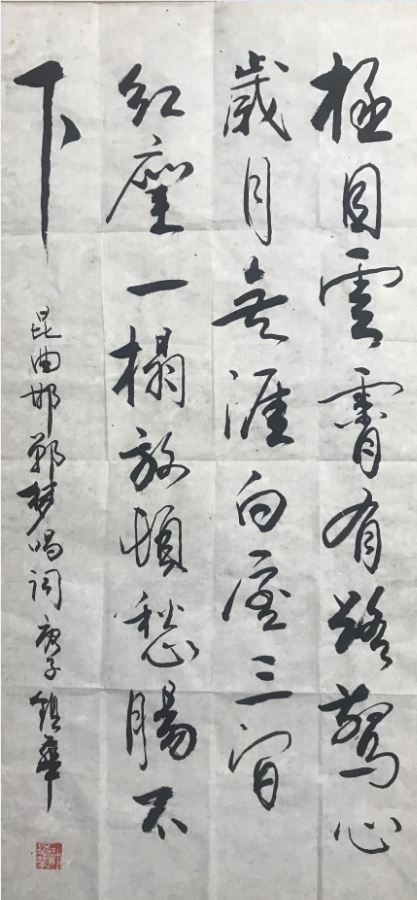 極目雲霄有路驚心
歲月無涯白屋三間
紅塵一榻放頓愁腸不
下
昆曲邯鄲夢唱詞庚子